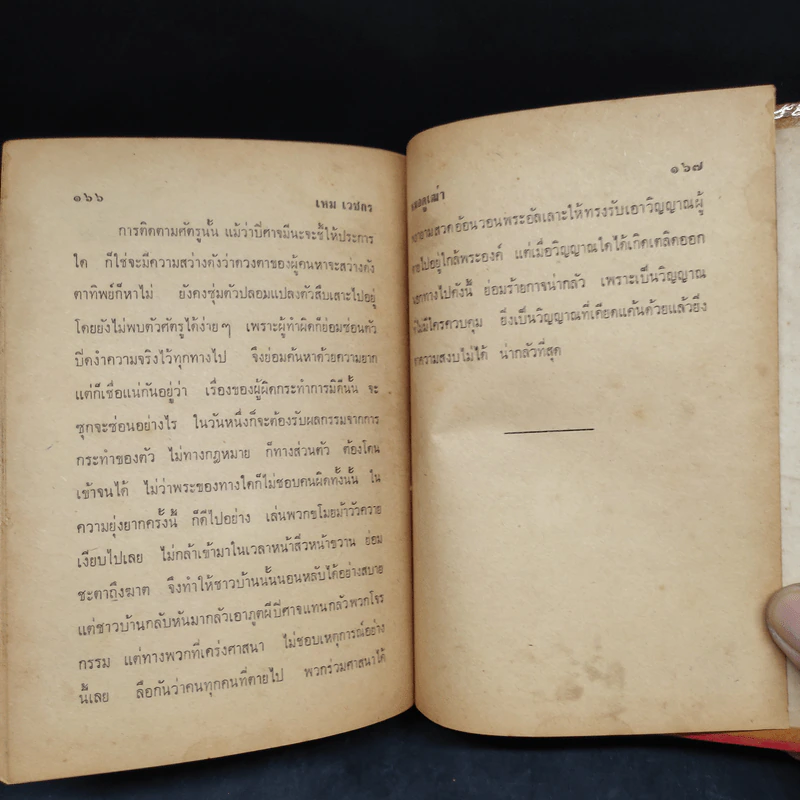 ๑๖๖
เหม เวชกร
การติดตามศัตรูนั้น แม้ว่าปีศาจมีนะจะชี้ให้ประการ
ใด ก็ใช่จะมีความสว่างดังดวงตาของผู้คนหาจะสว่างดัง
ตาทิพย์ก็หาไม่ ยังคงซุ่มตัวปลอมแปลงตัวสืบเสาะไปอยู่
โดยยังไม่พบตัวศัตรูได้ง่ายๆ เพราะผู้ทำผิดก็ย่อมซ่อนตัว
ปิดงำความจริงไว้ทุกทางไป จึงย่อมค้นหาด้วยความยาก
แต่ก็เชื่อแน่กันอยู่ว่า เรื่องของผู้ผิดกระทำการมิดีนั้น จะ
ซุกจะซ่อนอย่างไร ในวันหนึ่งก็จะต้องรับผลกรรมจากการ
กระทำของตัว ไม่ทางกฎหมาย ก็ทางส่วนตัว ต้องโดน
เข้าจนได้ ไม่ว่าพระของทางใดก็ไม่ชอบคนผิดทั้งนั้น ใน
ความยุ่งยากครั้งนี้ ก็ดีไปอย่าง เล่นพวกขโมยม้าวัวควาย
เงียบไปเลย ไม่กล้าเข้ามาในเวลาหน้าสิ่วหน้าขวาน ย่อม
ชะตาถึงฆาต จึงทำให้ชาวบ้านนั้นนอนหลับได้อย่างสบาย
แต่ชาวบ้านกลับหันมากลัวเอาภูตผีปีศาจแทนกลัวพวกโจร
กรรม แต่ทางพวกที่เคร่งศาสนา ไม่ชอบเหตุการณ์อย่าง
นี้เลย ลือกันว่าคนทุกคนที่ตายไป พวกร่วมศาสนาได้
๑๖๗
สวดอ้อนวอนพระอัลเลาะให้ทรงรับเอาวิญญาณผู้
ตายไปอยู่ใกล้พระองค์ แต่เมื่อวิญญาณใดได้เกิดเตลิดออก
นอกทางไปดังนี้ ย่อมร้ายกาจน่ากลัว เพราะเป็นวิญญาณ
ที่ไม่มีใครควบคุม ยิ่งเป็นวิญญาณที่เคียดแค้นด้วยแล้วยิ่ง
หาความสงบไม่ได้ น่ากลัวที่สุด